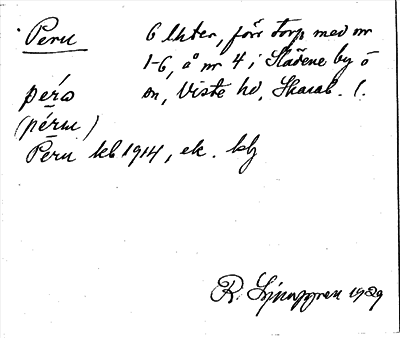 Peru
6 lhter, förr torp med nr
1-6, å nr 4 i Stärene by ö
on, Viste hd, Skarab. l.
péro
(péru)
Peru kb 1914, ek. kbj
R. Ljunggren 1929